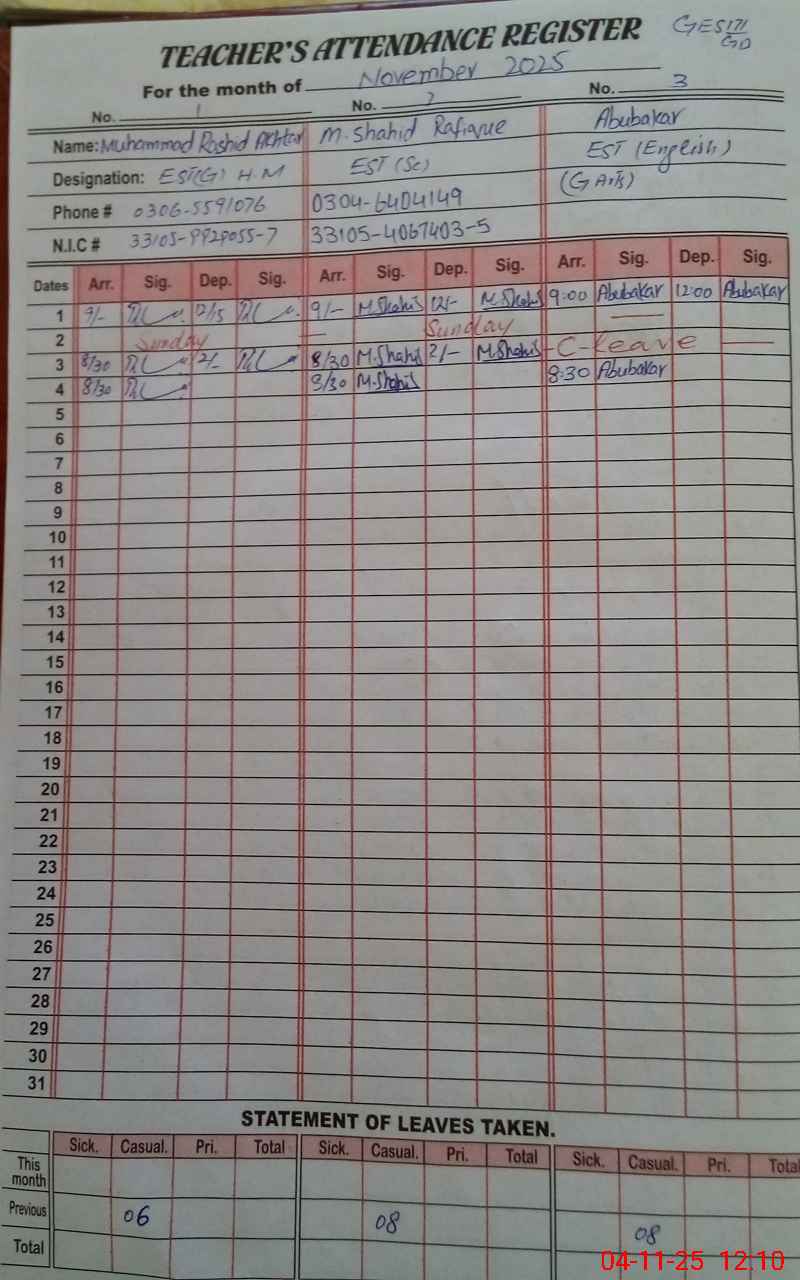 TEACHER'S ATTENDANCE REGISTER
GES 171/GD
For the month of November 2025
No. 1 No. 2 No. 3
Name: Muhammad Rashid Akhtar M. Shahid Rafique Abubakar
Designation: EST(G) H.M EST (Sc) EST (English)
(G Arts)
Phone # 0306-5591076 0304-6404149
N.I.C # 33105-9929055-7 33105-4067403-5
Dates Arr. Sig. Dep. Sig. Arr. Sig. Dep. Sig. Arr. Sig. Dep. Sig.
1 9/- 12/15 9/- M.Shahid 12/- M.Shahid 9:00 Abubakar 12:00 Abubakar
2 Sunday — Sunday —
3 8/30 2/- 8/30 M.Shahid 2/- M.Shahid - C - leave —
4 8/30 8/30 M.Shahid 8:30 Abubakar
5
6
7
8
9
10
11
12
13
14
15
16
17
18
19
20
21
22
23
24
25
26
27
28
29
30
31
STATEMENT OF LEAVES TAKEN.
Sick. Casual. Pri. Total Sick. Casual. Pri. Total Sick. Casual. Pri. Total
This month
Previous 06 08 08
Total
04-11-25 12.10